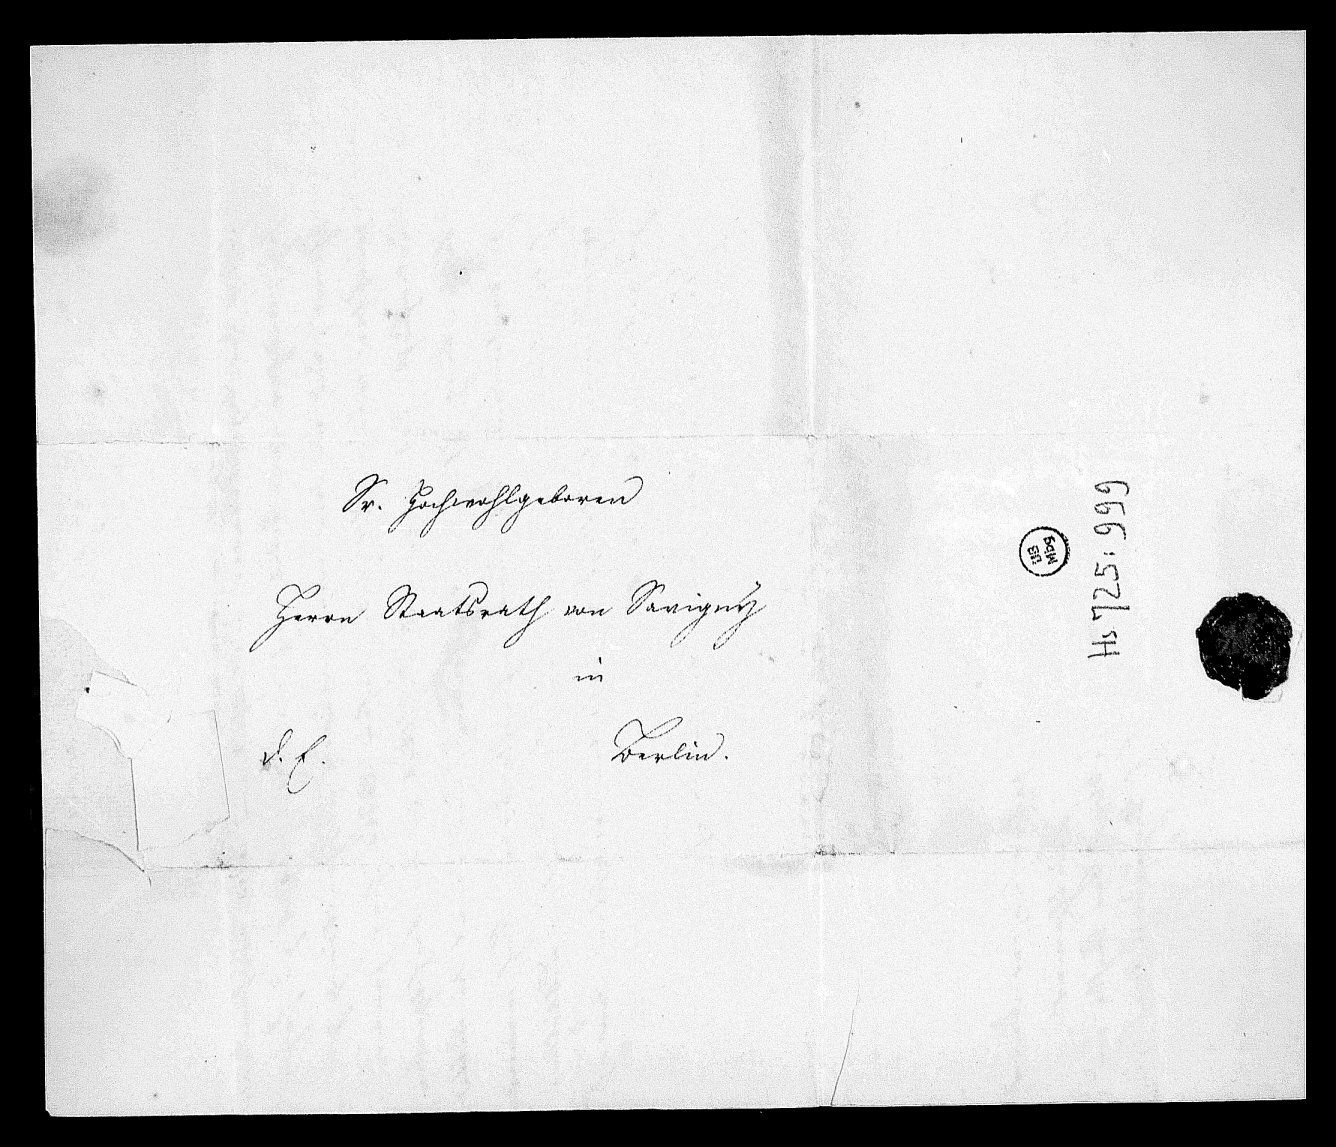 Sr. Hochwohlgeboren
Herrn Staatsrath von Savigny
in
d. E.
Berlin.
Hs 725: 999
UB
Mbg